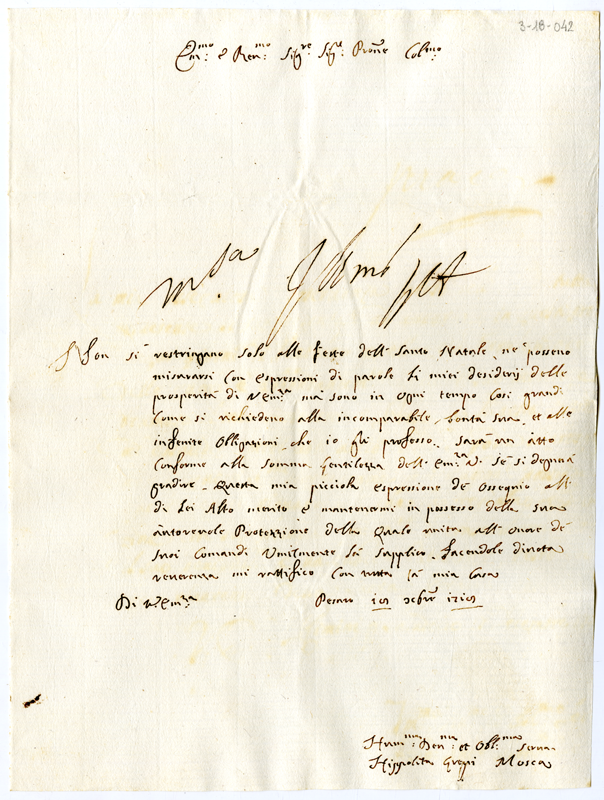 3-18-042
Em:mo e Ren:mo Sig:re Sig:re Prone Col:mo
Non si restringano solo alle feste dell Santo Natale, ne possono
misurarsi con espressioni di parole li miei desiderij delle
prosperità di V Em:za ma sono in ogni tempo così grandi
come si richiedeno alla incomparabile bontà sua, et alle
infenite obligazioni, che io gli professo, sarà un atto
conforme alla somma gentilezza dell' Em:za V. se si degnerà
gradire questa mia picciola espressione de ossequio all
di Lei Alto merito e mantenermi in possesso della sua
autorevole Protezzione della quale unita all' onore de
suoi comandi Umilmente la supplico, facendole divota
reverenza mi rattifico con tutta la mia Casa
Di V. Em:za Pesaro xbre
Hum:ma Dev:ma et Obl:ma Serva
Hippolita Greppi Mosca